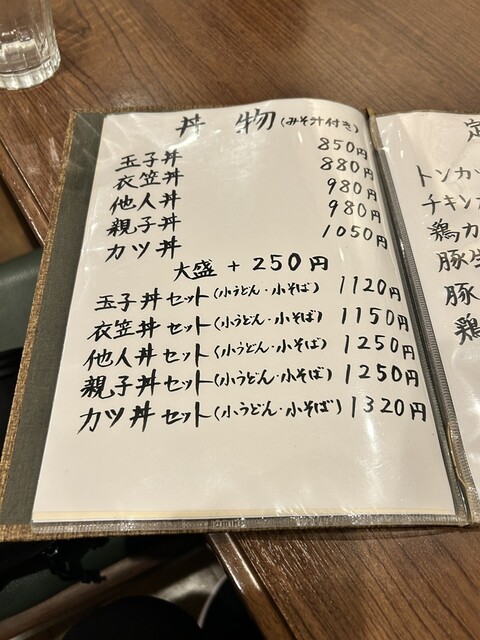 丼 物 (みそ汁付き)
玉子丼 850円
衣笠丼 880円
他人丼 980円
親子丼 980円
カツ丼 1050円
大盛 + 250円
玉子丼セット(小うどん・小そば) 1120円
衣笠丼セット(小うどん・小そば) 1150円
他人丼セット(小うどん・小そば) 1250円
親子丼セット(小うどん・小そば) 1250円
カツ丼セット(小うどん・小そば) 1320円
定
トンカツ
チキンカ
鶏カ
豚生
豚
鶏